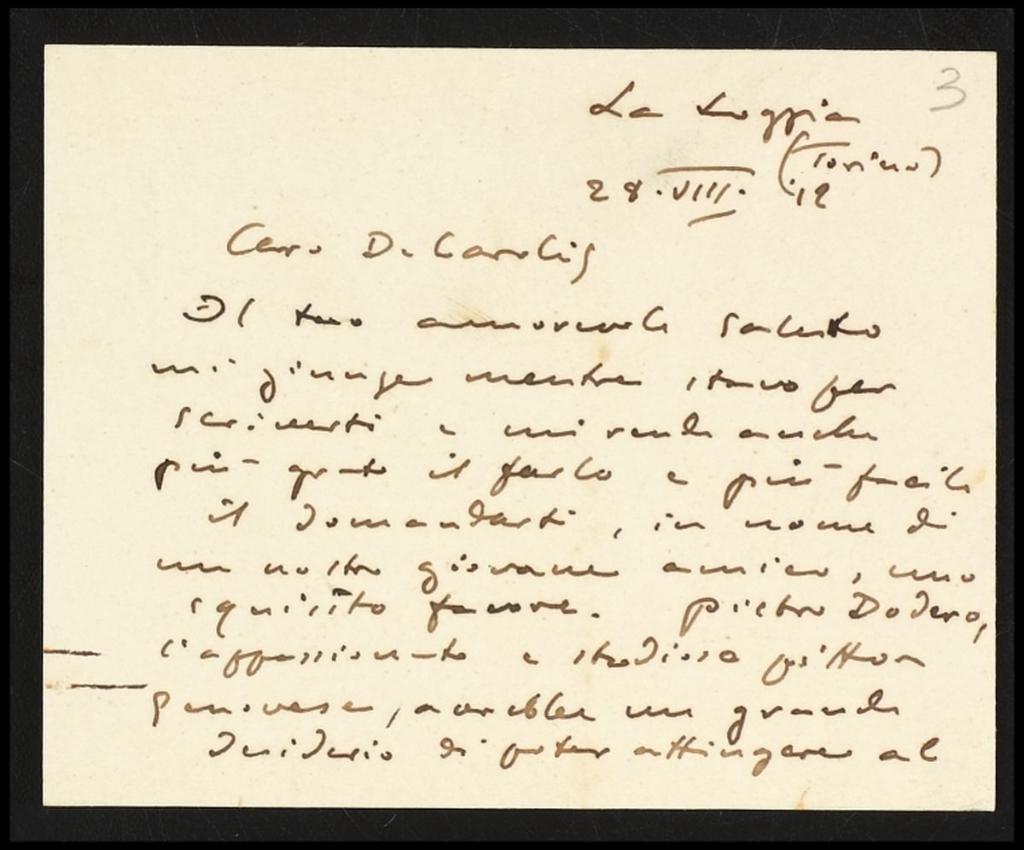 3
La Loggia
(Torino)
28.VIII.'12
Caro De Carolis
Il tuo amorevole saluto
mi giunge mentre stavo per
scriverti e mi rende anche
più grato il farlo e più facile
il domandarti, in nome di
un nostro giovane amico, uno
squisito favore. Pietro Dodero,
l'appassionato e studioso pittore
genovese, avrebbe un grande
desiderio di poter attingere al